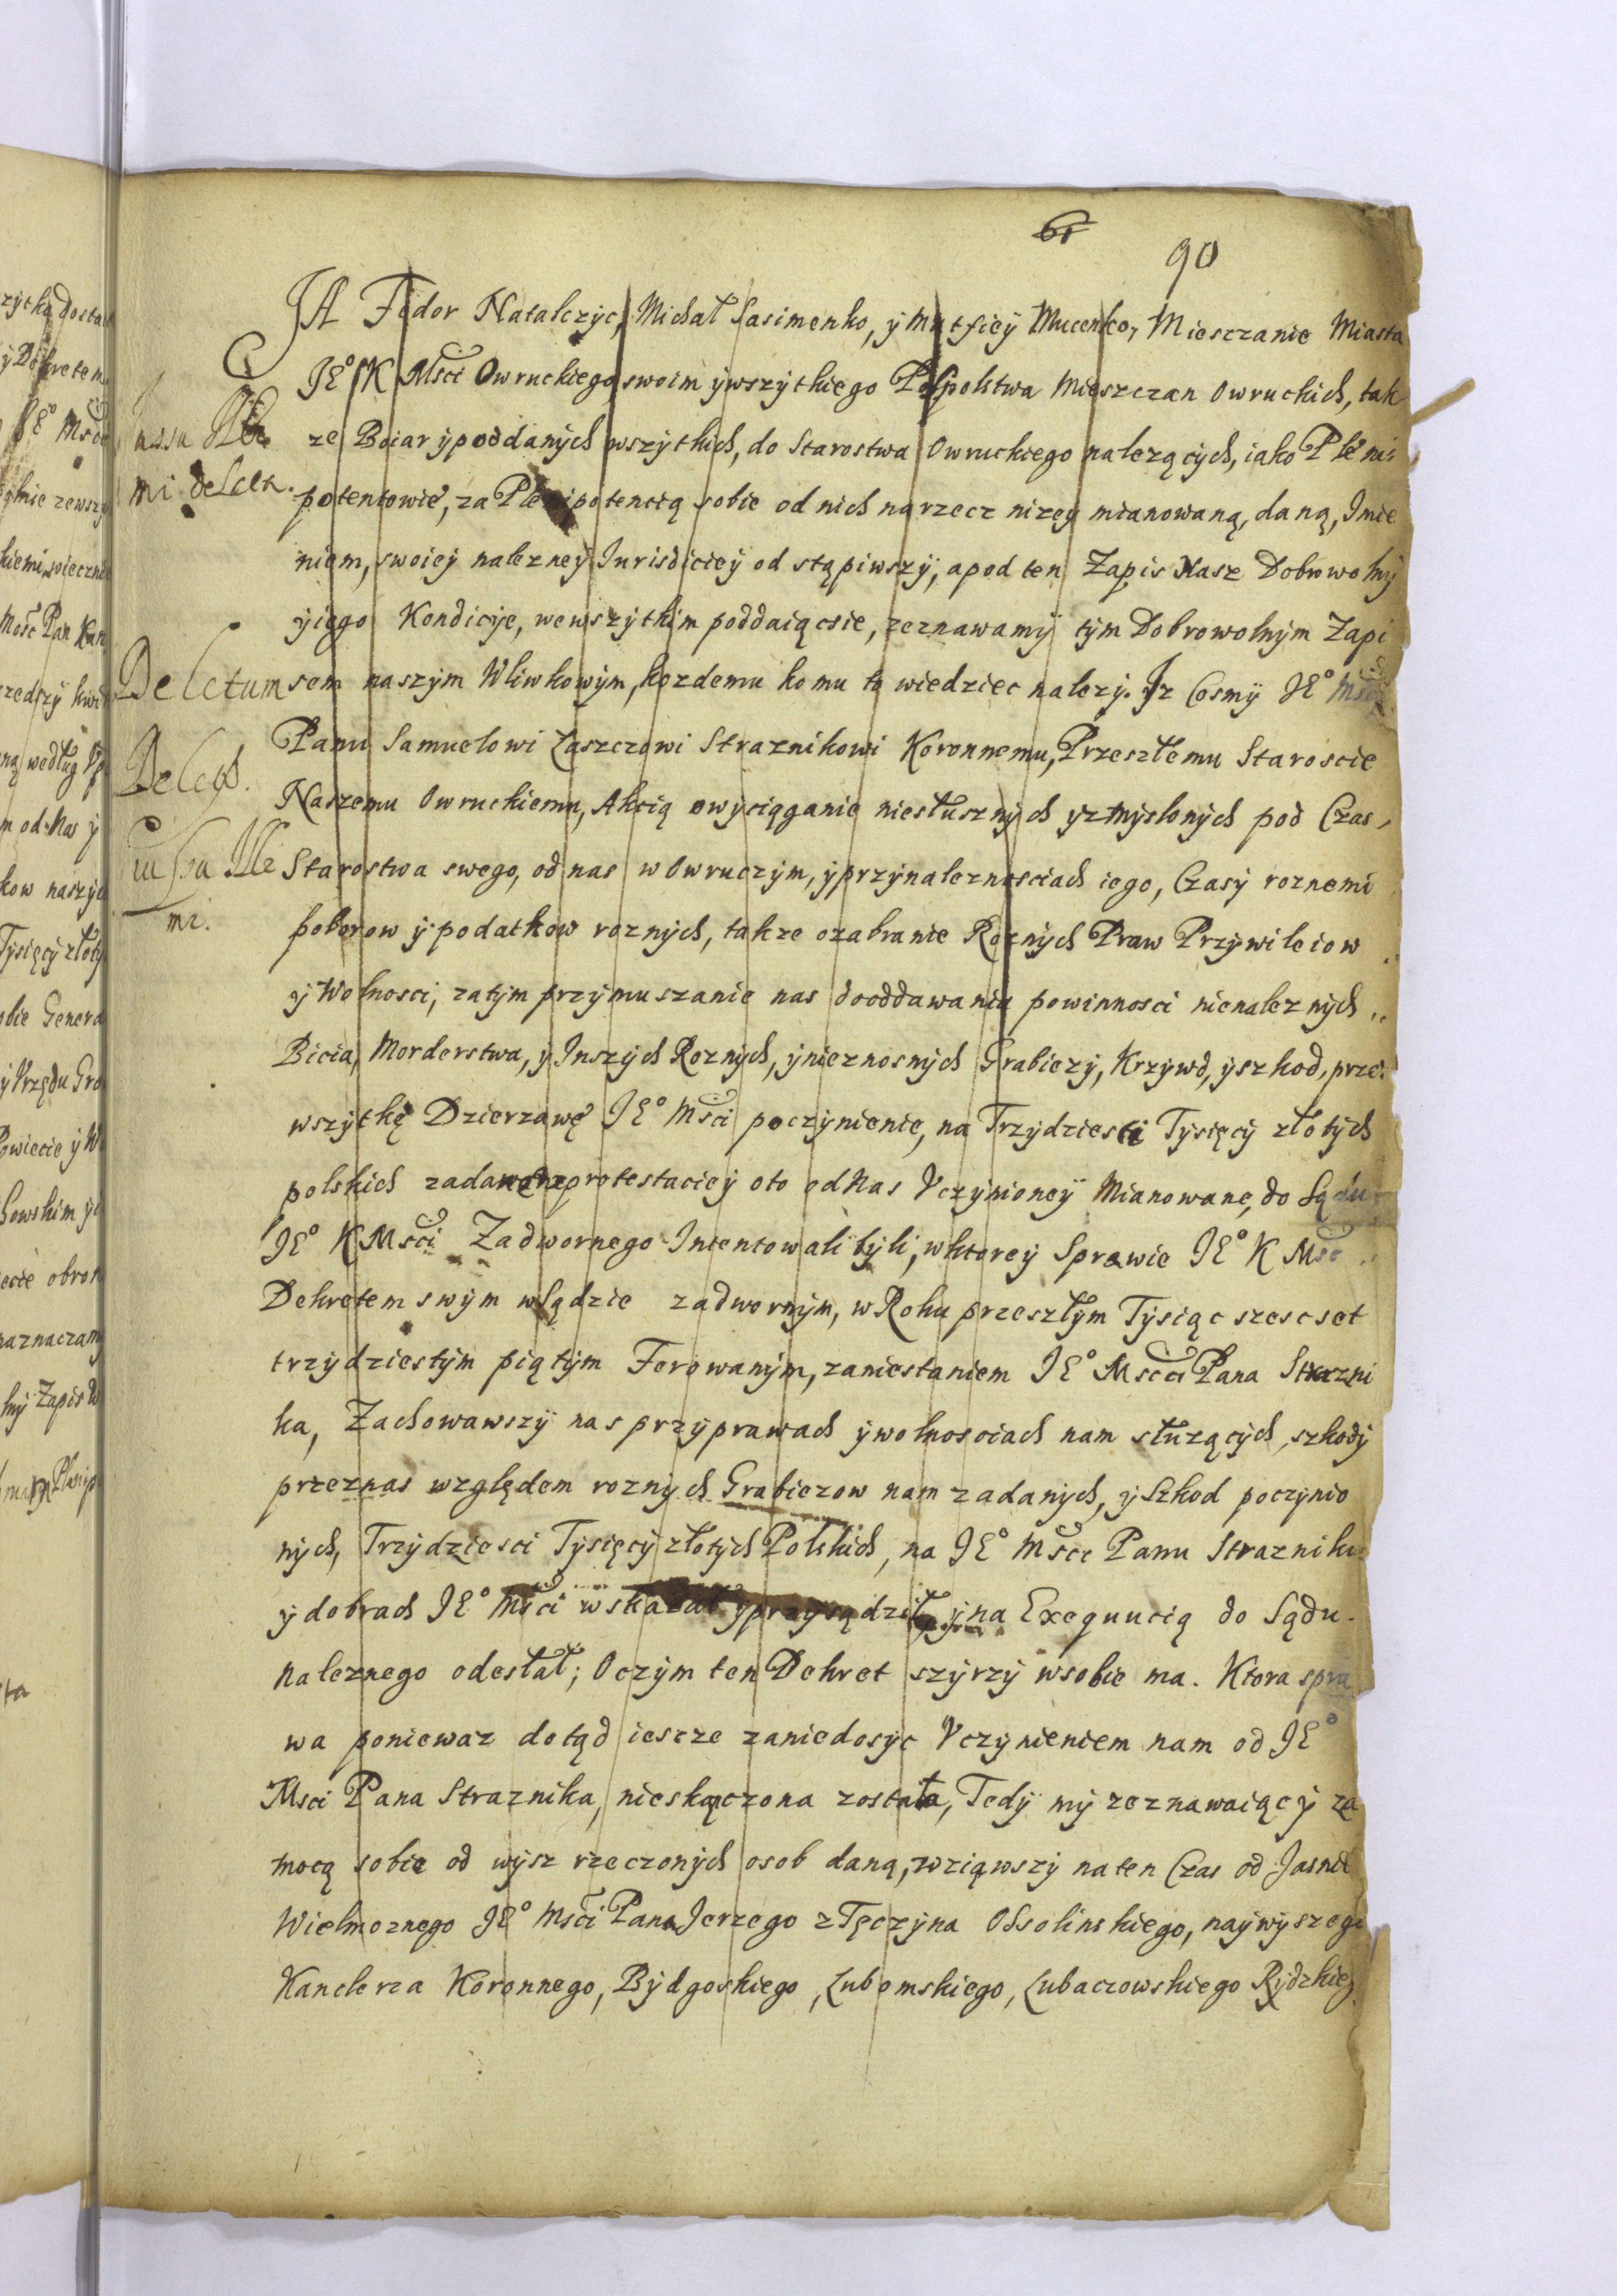 61
90
JA Fedor Natalczyc, Michał Sasimenko, ÿ Matfieÿ Mucenko, Miesczanie Miasta
JE° K Msci Owruckiego, swoim ÿ wszÿtkiego Pospolstwa Mieszczan Owruckich, tak
ze Boiar ÿ poddanÿch wszÿtkich, do Starostwa Owruckiego nalezących, iako Pleni:
potentowie, za Plenipotencią sobie od nich na rzecz nizeÿ mianowaną, daną, Imie
niem, swoieÿ nalezneÿ Jurisdicieÿ odstąpiwszÿ, a pod ten Zapis Nasz Dobrowolnÿ
ÿ iego Kondicÿe, we wszÿtkim poddaiąc sie, zeznawamÿ tÿm Dobrowolnÿm Zapi
sem naszÿm Wliwkowÿm, kozdemu komu to wiedziec nalezÿ. Jz Cosmÿ JE° Msci
Panu Samuelowi Łaszczowi Straznikowi Koronnemu, Przeszłemu Staroscie
Naszemu Owruckiemu, Akcią o wÿciąganie niesłusznÿch ÿ zmÿslonÿch pod Czas,
Starostwa swego, od nas w Owruczÿm, ÿ przÿnaleznosciach iego, Czasÿ roznemi
poborow ÿ podatkow roznÿch, takze o zabranie Roznÿch Praw Przÿwileiow
ÿ Wolnosci, zatÿm przÿmuszanie nas do oddawania powinnosci nienaleznÿch
Bicia, Morderstwa, ÿ Inszÿch Roznÿch, ÿ nieznosnÿch Grabiezÿ, Krzÿwd, ÿ szkod, prze:
wszÿtkę Dzierzawę JE° Msci poczÿnienie, na Trzÿdziesci Tÿsięcÿ złotÿch
polskich zadane protestacieÿ o to od Nas Vczÿnioneÿ Mianowane, do Sądu
JE° K Msci Zadwornego Intentowali bÿli, w ktoreÿ Sprawie JE° K Msc
Dekretem swÿm w Sądzie zadwornÿm, w Roku przeszłÿm Tÿsiąc szescset
trzÿdziestÿm piątÿm Ferowanÿm, za niestaniem JE° Msci Pana Strazni
ka, Zachowawszÿ nas przÿ prawach ÿ wolnosciach nam słuzącÿch, szkodÿ
przez nas względem roznÿch Grabiezow nam zadanÿch, ÿ Szkod poczÿnio
nÿch, Trzÿdziesci Tÿsięcÿ złotÿch Polskich, na JE° Msci Panu Strazniku
ÿ dobrach JE° Msci wskazał ÿ przÿsądził, ÿ na Exequucią do Sądu
Naleznego odesłał; O czÿm ten Dekret szÿrzÿ w sobie ma. Ktora spra
wa poniewaz dotąd iescze za niedosÿc Vczÿnieniem nam od JE°
Msci Pana Straznika, nieskączona została, Tedÿ mÿ zeznawaiącÿ za
mocą sobie od wÿsz rzeczonÿch osob daną, wziąwszÿ na ten Czas od Jasnie
Wielmoznego JE° Msci Pana Jerzego z Tęczÿna Ossolinskiego, naÿwÿszego
Kanclerza Koronnego, Bÿdgoskiego, Lubomskiego, Lubaczowskiego Rÿdzkieg
Deletum
mi.